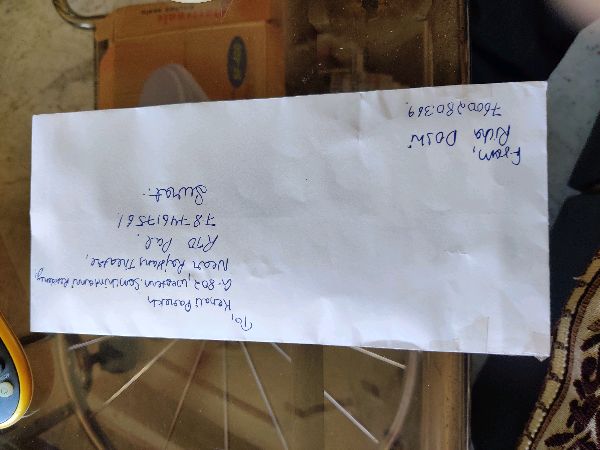 To,
Kenali Parekh
G-802, Western Somchintamni Residency,
Near Rajhans Theatre,
RTO Pal.
7874617561
Surat.
From,
Richa Doshi
7600280369.